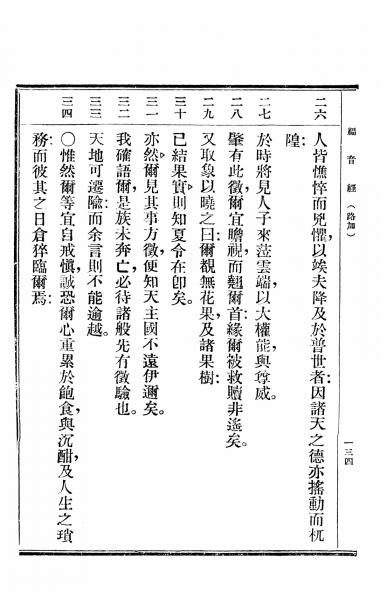 福音經（路加）
一三四
二六 人皆憔悴而兇懼，以竢夫降及於普世者：因諸天之德亦搖動而杌
隍：
二七 於時將見人子來蒞雲端，以大權能與尊威。
二八 肇有此徵，爾宜瞻視，而翹爾首，緣爾被救贖非遙矣。
二九 又取象以曉之曰：爾覩無花果，及諸果樹：
三十 已結果實，則知夏令在卽矣。
三一 亦然，爾見其事方徵，便知天主國不遠伊邇矣。
三二 我確語爾，是族未奔亡，必待諸般先有徵驗也。
三三 天地可遷險，而余言則不能逾越。
三四 〇惟然爾等宜自戒愼，誠恐爾心重累於飽食，與沉酣，及人生之瑣
務：而彼其之日倉猝臨爾焉：